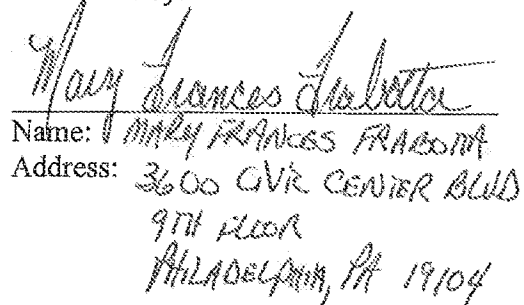 Mary Frances Frabotta
Name: MARY FRANCES FRABOTTA
Address: 3600 CIVIC CENTER BLVD
9TH FLOOR
PHILADELPHIA, PA 19104